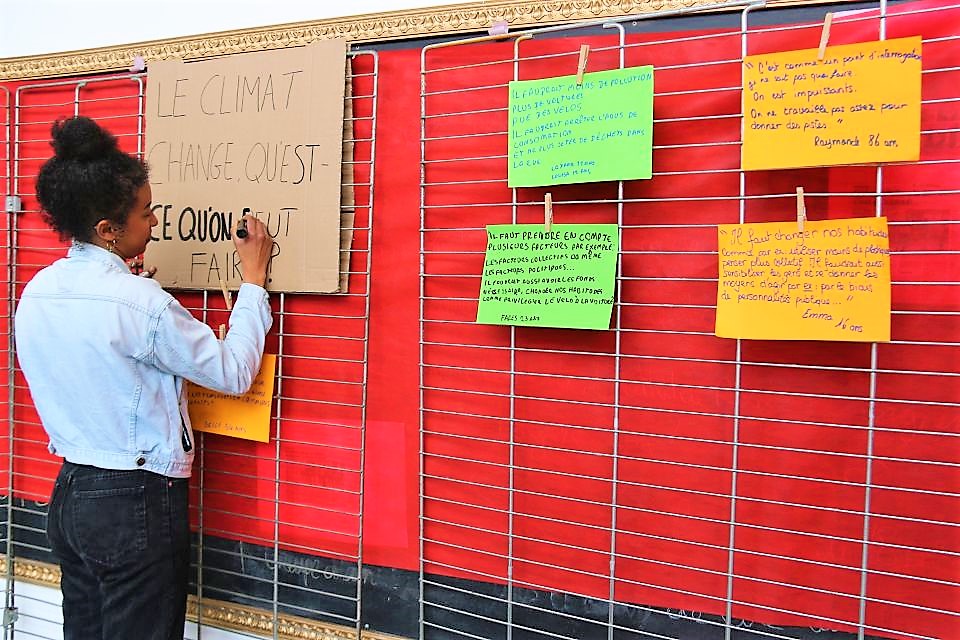 LE CLIMAT
CHANGE, QU'EST-
CE QU'ON PEUT
FAIRE?
IL FAUDRAIT MOINS DE POLLUTION
PLUS DE VOITURES
QUE DES VELOS
IL FAUDRAIT ARRÊTER L'ABUS DE
CONSOMATION
ET NE PLUS JETER DE DÉCHETS DANS
LA RUE
IL FAUT PRENDRE EN COMPTE
PLUSIEURS FACTEURS PAR EXEMPLE
LES FACTEURS COLLECTIFS OU MÊME
LES FACTEURS POLITIQUES...
IL FAUDRAIT AUSSI AVOIR LES FONDS
NÉCESSAIRE, CHANGER NOS HABITUDES
COMME PRIVILEGIER LE VÉLO À LA VOITURE
FARES 23 ANS
"C'est comme un point d'interrogation
je ne sait pas que faire.
On est impuissants.
On ne travaille pas assez pour
donner des pistes"
Raymonde 86 ans
"Il faut changer nos habitudes
comme par ex utiliser moins de plastique
penser plus collectif. Il faudrait aussi
sensibiliser les gens et se donner les
moyens d'agir par ex: par le biais
de personnalités publique..."
Emma 16 ans